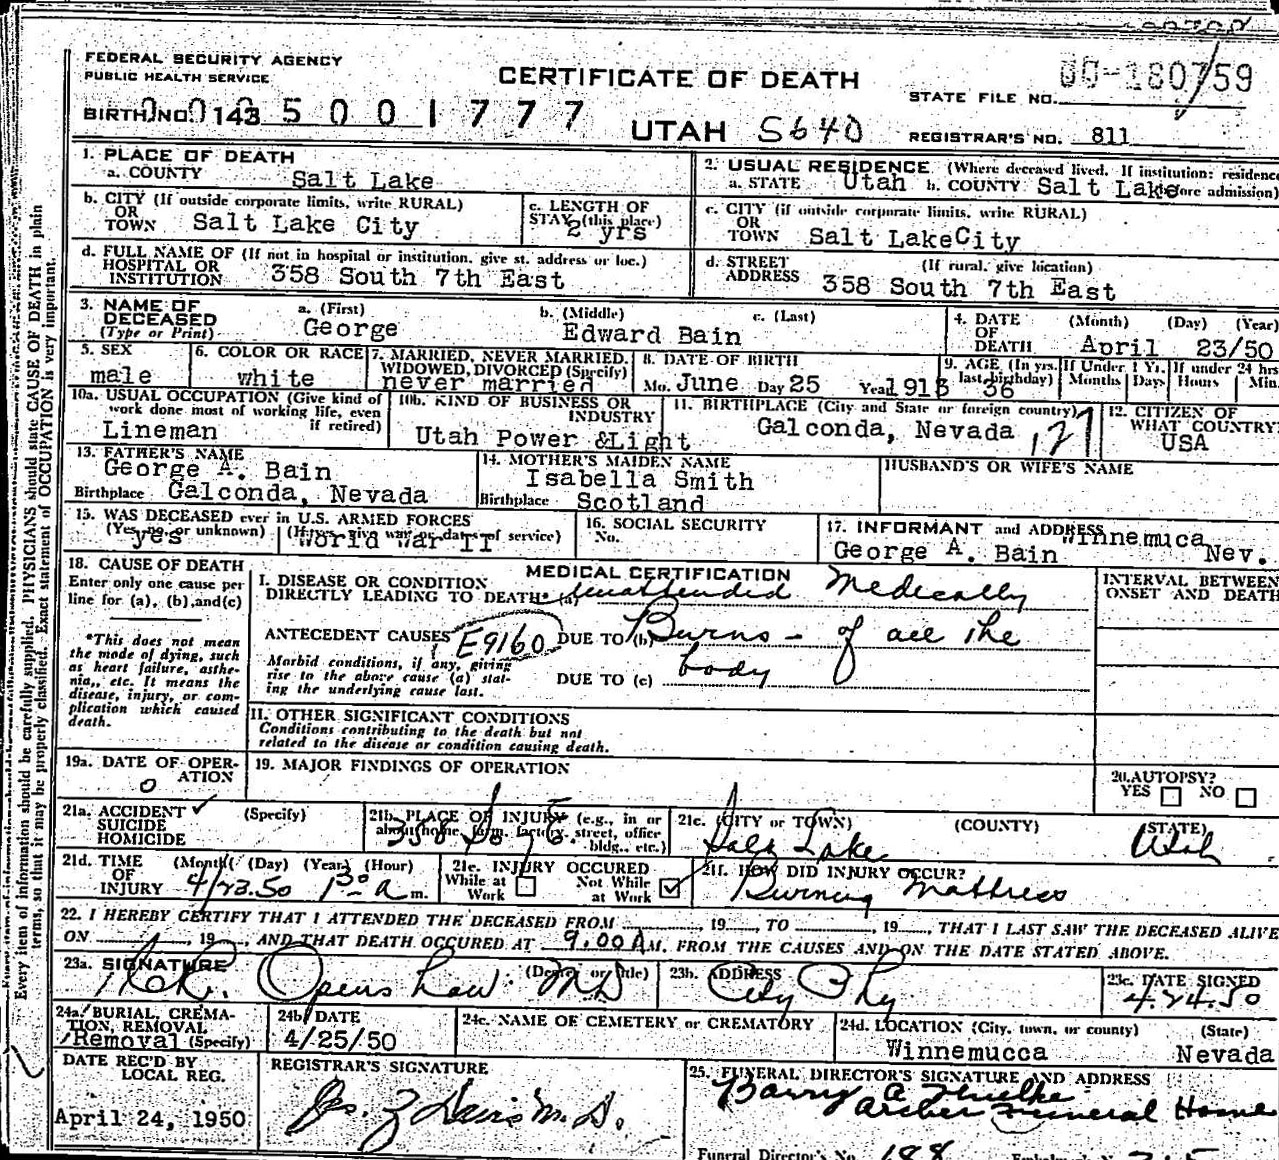 FEDERAL SECURITY AGENCY
PUBLIC HEALTH SERVICE
CERTIFICATE OF DEATH
STATE FILE NO.
BIRTH NO. 143 5 0 0 1 7 7 7
UTAH S640
REGISTRAR'S NO. 811
1. PLACE OF DEATH
a. COUNTY Salt Lake
2. USUAL RESIDENCE (Where deceased lived. If institution: residence
a. STATE Utah b. COUNTY Salt Lake fore admission)
b. CITY (If outside corporate limits, write RURAL)
OR
TOWN Salt Lake City
c. LENGTH OF
STAY (this place)
2 yrs
c. CITY (if outside corporate limits, write RURAL)
OR
TOWN Salt LakeCity
d. FULL NAME OF (If not in hospital or institution. give st. address or loc.)
HOSPITAL OR
INSTITUTION 358 South 7th East
d. STREET (If rural. give location)
ADDRESS 358 South 7th East
3. NAME OF
DECEASED
(Type or Print)
a. (First) b. (Middle) c. (Last)
George Edward Bain
4. DATE (Month) (Day) (Year)
OF
DEATH April 23/50
5. SEX
male
6. COLOR OR RACE
white
7. MARRIED, NEVER MARRIED.
WIDOWED, DIVORCED (Specify)
never married
8. DATE OF BIRTH
Mo. June Day 25 Year
9. AGE (In yrs.
last birthday)
36
If Under 1 Yr.
Months Days
If under 24 hrs
Hours Min.
10a. USUAL OCCUPATION (Give kind of
work done most of working life, even
if retired)
Lineman
10b. KIND OF BUSINESS OR
INDUSTRY
Utah Power &Light
11. BIRTHPLACE (City and State or foreign country)
Galconda, Nevada
12. CITIZEN OF
WHAT COUNTRY
USA
13. FATHER'S NAME
George A. Bain
Birthplace Galconda, Nevada
14. MOTHER'S MAIDEN NAME
Isabella Smith
Birthplace Scotland
HUSBAND'S OR WIFE'S NAME
15. WAS DECEASED ever in U.S. ARMED FORCES
(Yes, no, or unknown) (If yes, give war or dates of service)
yes World War II
16. SOCIAL SECURITY
No.
17. INFORMANT and ADDRESS Winnemuca
George A. Bain Nev.
18. CAUSE OF DEATH
Enter only one cause per
line for (a), (b),and(c)
*This does not mean
the mode of dying, such
as heart failure, asthe-
nia,, etc. It means the
disease, injury, or com-
plication which caused
death.
MEDICAL CERTIFICATION
I. DISEASE OR CONDITION
DIRECTLY LEADING TO DEATH* (a) unattended Medically
ANTECEDENT CAUSES E9160 DUE TO (b) Burns - of all the
Morbid conditions, if any, giving
rise to the above cause (a) stat-
ing the underlying cause last.
DUE TO (c) body
II. OTHER SIGNIFICANT CONDITIONS
Conditions contributing to the death but not
related to the disease or condition causing death.
INTERVAL BETWEEN
ONSET AND DEATH
19a. DATE OF OPER-
ATION
0
19. MAJOR FINDINGS OF OPERATION
20. AUTOPSY?
YES NO
21a. ACCIDENT ✓ (Specify)
SUICIDE
HOMICIDE
21b. PLACE OF INJURY (e.g., in or
about home, farm, factory, street, office
bldg., etc.)
358 So 7 E.
21c. (CITY or TOWN) (COUNTY) (STATE)
Salt Lake Utah
21d. TIME (Month) (Day) (Year) (Hour)
OF
INJURY 4/23.50 1 30 a m.
21e. INJURY OCCURED
While at Not While
Work at Work ✓
21f. HOW DID INJURY OCCUR?
Burning Mattress
22. I HEREBY CERTIFY THAT I ATTENDED THE DECEASED FROM , 19 , TO , 19 , THAT I LAST SAW THE DECEASED ALIVE
ON , 19 , AND THAT DEATH OCCURED AT 9.00 A M. FROM THE CAUSES AND ON THE DATE STATED ABOVE.
23a. SIGNATURE (Degree or title)
Openshaw MD
23b. ADDRESS
City Phy
23c. DATE SIGNED
4.24.50
24a. BURIAL, CREMA-
TION, REMOVAL
Removal (Specify)
24b. DATE
4/25/50
24c. NAME OF CEMETERY or CREMATORY
24d. LOCATION (City, town, or county) (State)
Winnemucca Nevada
DATE REC'D BY
LOCAL REG.
April 24, 1950
REGISTRAR'S SIGNATURE
M.D.
25. FUNERAL DIRECTOR'S SIGNATURE AND ADDRESS
Barry A
Archer Funeral Home
Funeral Director's No. 188
Every item of information should be carefully supplied. PHYSICIANS should state CAUSE OF DEATH in plain
terms, so that it may be properly classified. Exact statement of OCCUPATION is very important.